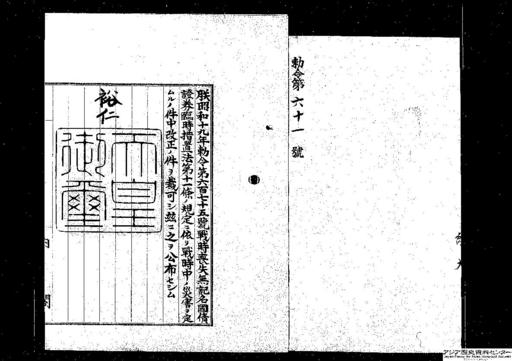 勅令第六十一號
朕昭和十九年勅令第六百七十五號戰時喪失無記名國債
證券臨時措置法第十一條ノ規定ニ依リ戰時中ノ災害ヲ定
ムルノ件中改正ノ件ヲ裁可シ玆ニ之ヲ公布セシム
裕仁
天皇御璽
内閣
アジア歴史資料センター